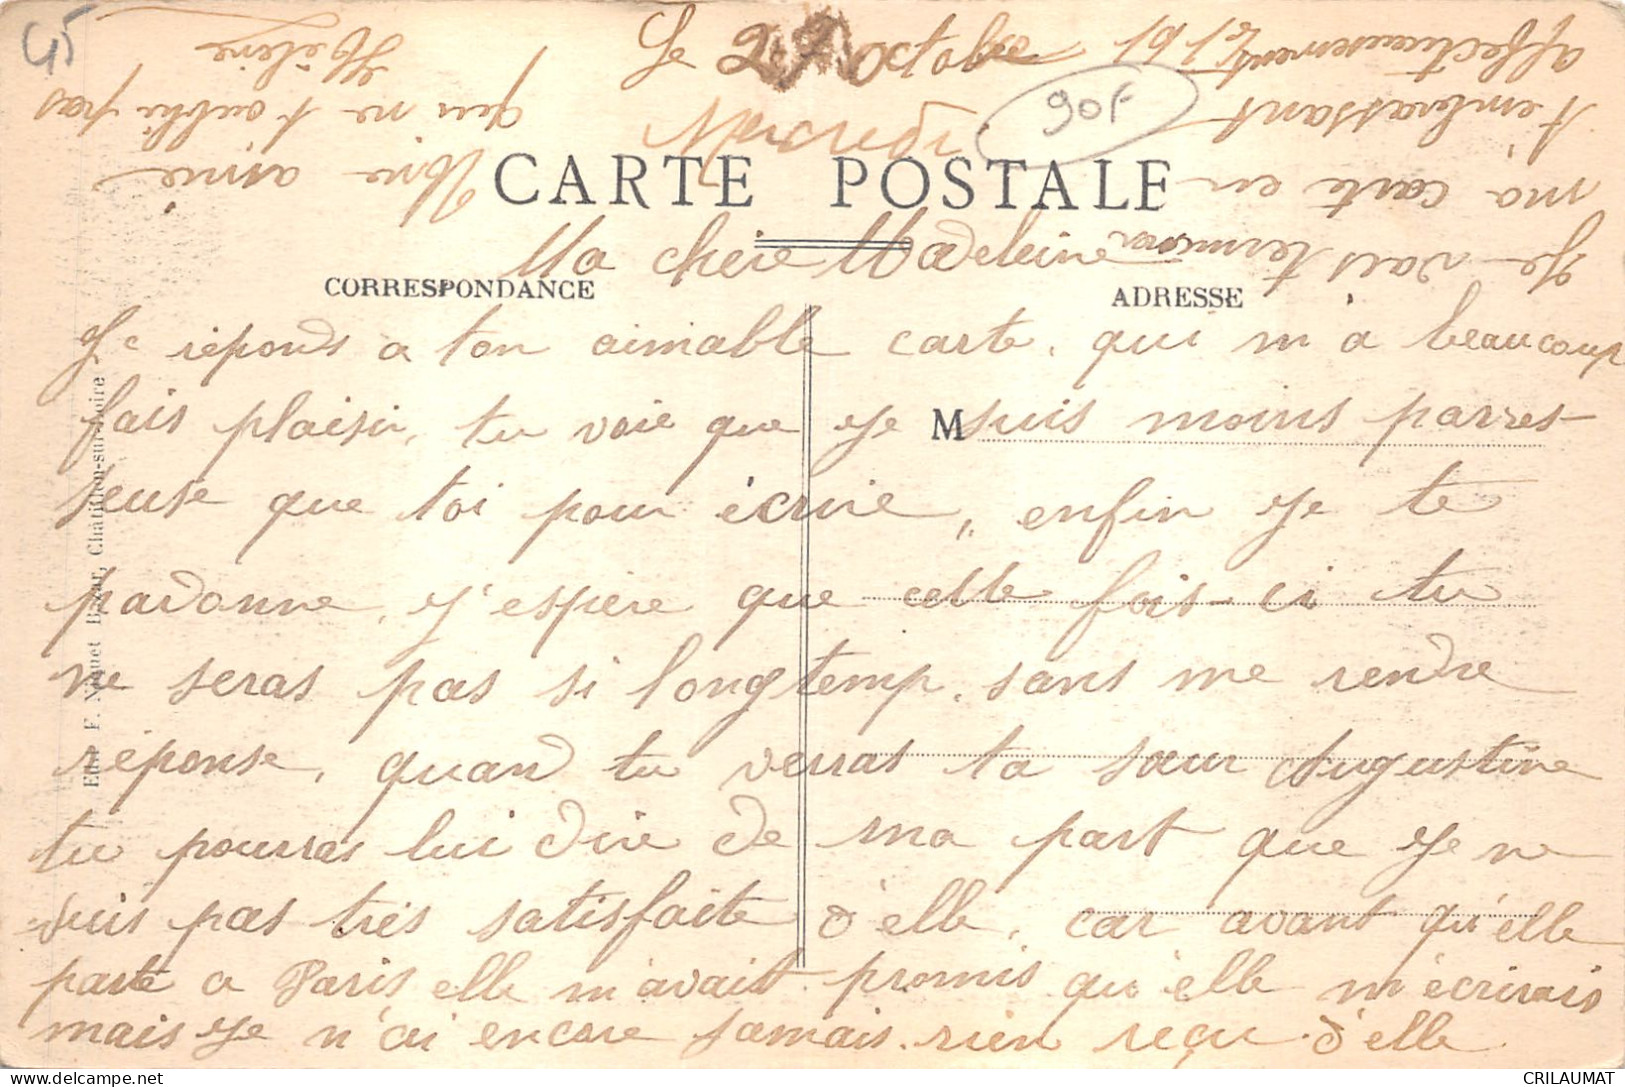 45
Le 27 Octobre
Mercredi
90F
CARTE POSTALE
CORRESPONDANCE
ADRESSE
M
Ma chère Madeleine
Je réponds a ton aimable carte, qui m'a beaucoup
fais plaisir, tu voie que je suis moins parres-
seuse que toi pour écrire, enfin je te
pardonne, j'espère que cette fois-ci tu
ne seras pas si longtemp, sans me rendre
réponse, quand tu verras ta sœur Augustine
tu pourras lui dire de ma part que je ne
suis pas très satisfaite d'elle, car avant qu'elle
parte a Paris elle m'avait promis qu'elle m'écrirais
mais je n'ai encore jamais rien reçu d'elle
Je vais terminer
ma carte en
t'embrassant
affectueusement
Ton amie
qui ne t'oublie pas
Hélène
Edit F. Niquet Bazar, Chatillon-sur-Loire
CRILAUMAT